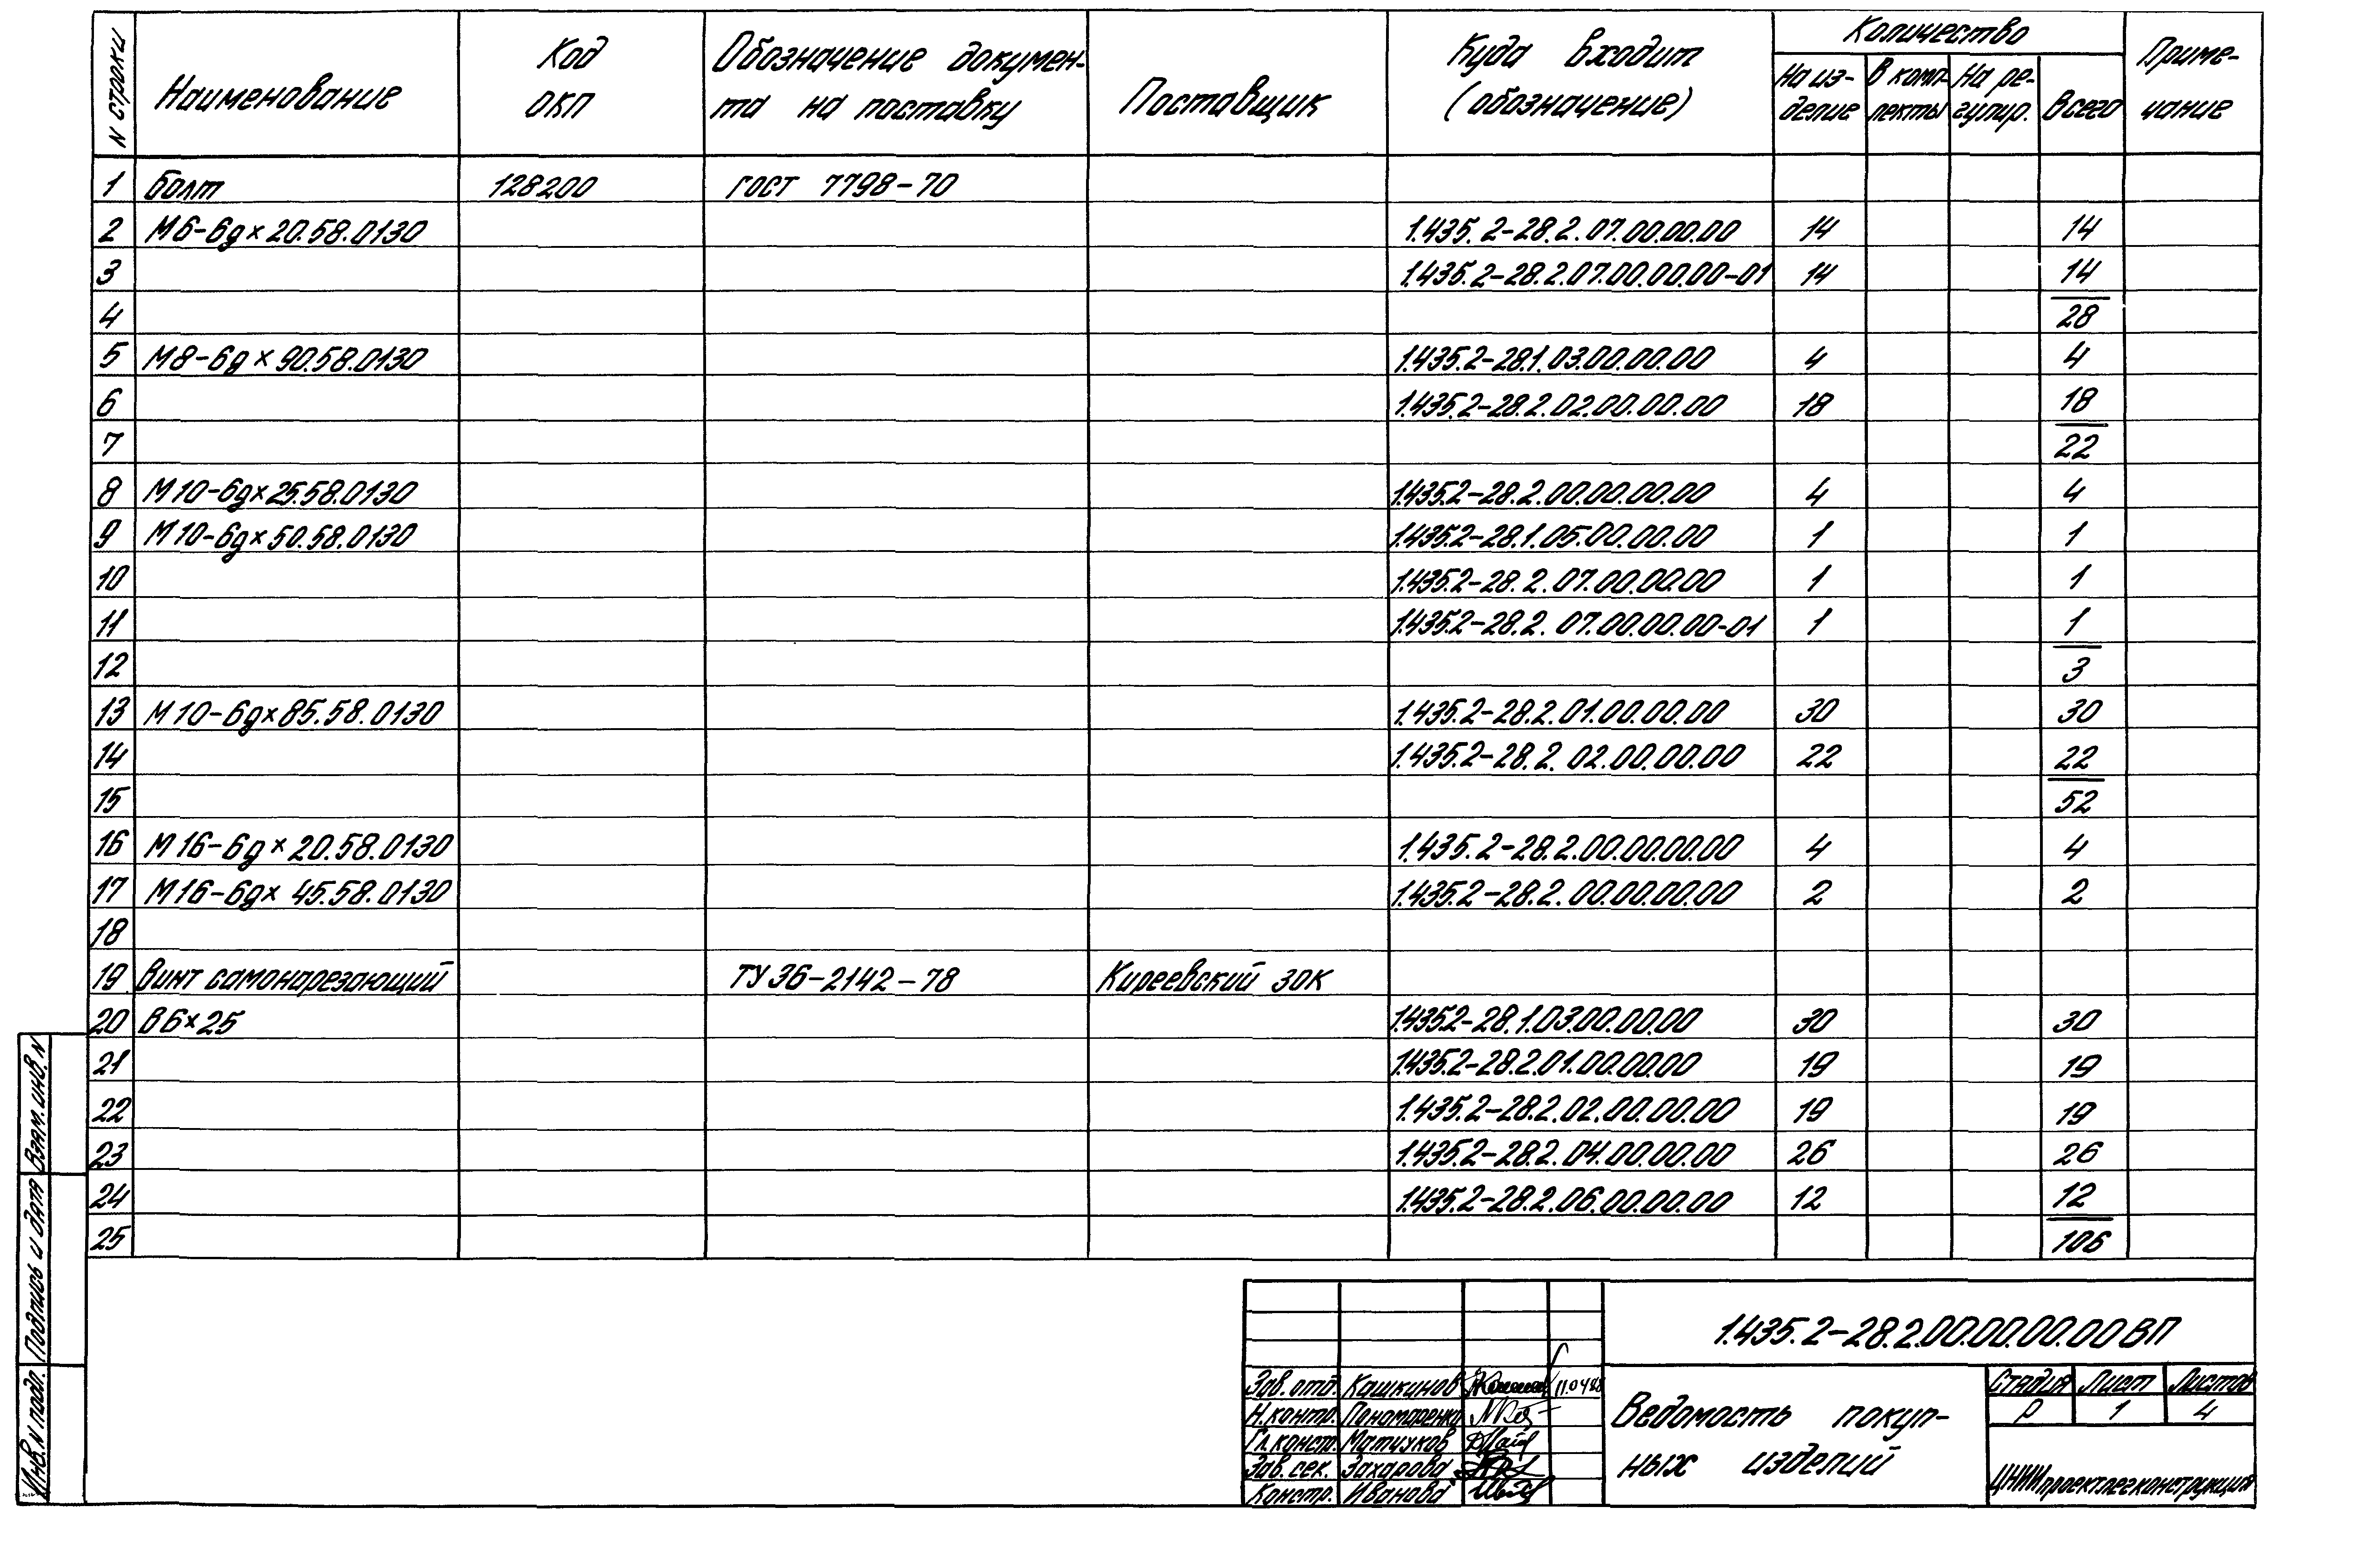 N строки
Наименование
Код
ОКП
Обозначение докумен-
та на поставку
Поставщик
Куда входит
(обозначение)
Количество
На из-
делие
В комп-
лекты
На ре-
гулир.
Всего
Приме-
чание
1 Болт 128200 ГОСТ 7798-70
2 М6-6g×20.58.0130 1.435.2-28.2.07.00.00.00 14 14
3 1.435.2-28.2.07.00.00.00-01 14 14
4 28
5 М8-6g×90.58.0130 1.435.2-28.1.03.00.00.00 4 4
6 1.435.2-28.2.02.00.00.00 18 18
7 22
8 М10-6g×25.58.0130 1.435.2-28.2.00.00.00.00 4 4
9 М10-6g×50.58.0130 1.435.2-28.1.05.00.00.00 1 1
10 1.435.2-28.2.07.00.00.00 1 1
11 1.435.2-28.2.07.00.00.00-01 1 1
12 3
13 М10-6g×85.58.0130 1.435.2-28.2.01.00.00.00 30 30
14 1.435.2-28.2.02.00.00.00 22 22
15 52
16 М16-6g×20.58.0130 1.435.2-28.2.00.00.00.00 4 4
17 М16-6g×45.58.0130 1.435.2-28.2.00.00.00.00 2 2
18
19 Винт самонарезающий ТУ 36-2142-78 Киреевский ЗОК
20 В6×25 1.435.2-28.1.03.00.00.00 30 30
21 1.435.2-28.2.01.00.00.00 19 19
22 1.435.2-28.2.02.00.00.00 19 19
23 1.435.2-28.2.04.00.00.00 26 26
24 1.435.2-28.2.06.00.00.00 12 12
25 106
Взам. инв. N
Подпись и дата
Инв. N подл.
1.435.2-28.2.00.00.00.00 ВП
Зав. отд. Кашкинов 11.04.88
Н. контр. Пономаренко
Гл. констр. Матчуков
Зав. сек. Захарова
Констр. Иванова
Ведомость покуп-
ных изделий
Стадия Лист Листов
Р 1 4
ЦНИИпроектлегконструкция